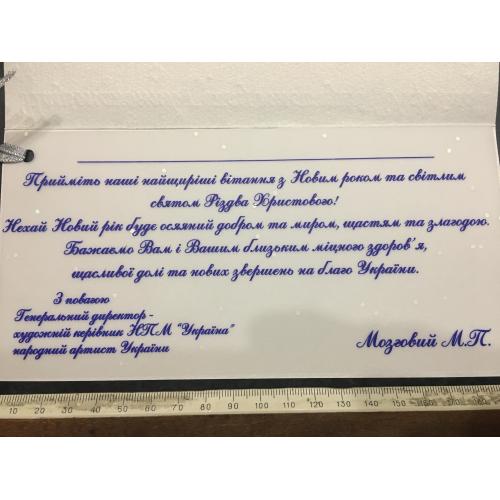 Прийміть наші найщиріші вітання з Новим роком та світлим
святом Різдва Христового!
Нехай Новий рік буде осяяний добром та миром, щастям та злагодою.
Бажаємо Вам і Вашим близьким міцного здоров'я,
щасливої долі та нових звершень на благо України.
З повагою
Генеральний директор -
художній керівник НПМ "Україна"
народний артист України
Мозговий М.П.
10 20 30 40 50 60 70 80 90 100 110 120 130 140 150 160 170 180